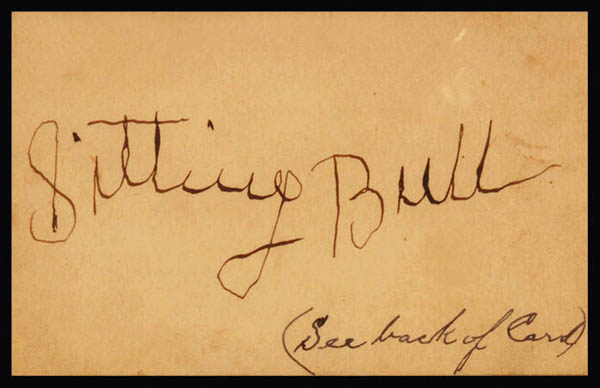 Sitting Bull
(See back of Card)